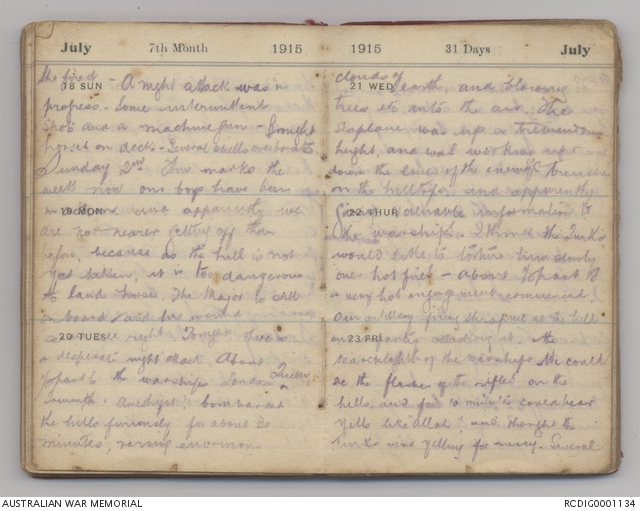 July 7th Month 1915
She fired - A night attack was in
18 SUN
progress - Some intermittent
shots and a machine gun - Brought
horses on deck - Several shells over boat
Sunday 2nd This marks the
week now our boys have been
19 MON
in and apparently we
are no nearer getting off than
before, because as the hill is not
yet taken, it is too dangerous
to land horses. The Major to call
on board and his
20 TUES
night. Tonight there is
a desperate night attack. About
the warships London Queen
Triumph Amethyst bombarded
the hills furiously for about 20
minutes, raising enormous
1915 31 Days July
clouds of earth, and blowing
21 WED
trees etc into the air. The
seaplane was up a tremendous
height, and was working up &
down the line of the enemy's trenches
on the hilltops, and apparently
22 THUR
valuable information to
the warships. I think the Turks
would like to torture him slowly
over hot fires - About
a very hot engagement commenced
Our artillery firing shrapnel at the hill
23 FRI
attacking it, the
searchlights of the warships. We could
see the flashes of the rifles on the
hills, and for 10 minutes could hear
yells like Allah! and thought the
Turks were yelling for mercy. Several
AUSTRALIAN WAR MEMORIAL RCDIG0001134